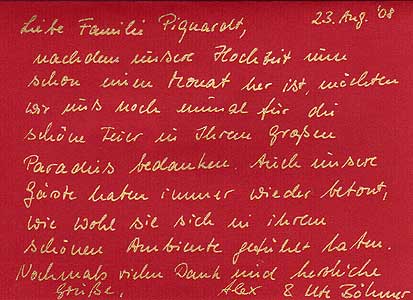 Liebe Familie Piquardt, 23. Aug. '08
nachdem unsere Hochzeit nun
schon einen Monat her ist, möchten
wir uns noch einmal für die
schöne Feier in Ihrem großen
Paradies bedanken. Auch unsere
Gäste haben immer wieder betont,
wie wohl sie sich in ihrem
schönen Ambiente gefühlt haben.
Nochmals vielen Dank und herzliche
Grüße, Alex & Ute Böhmer